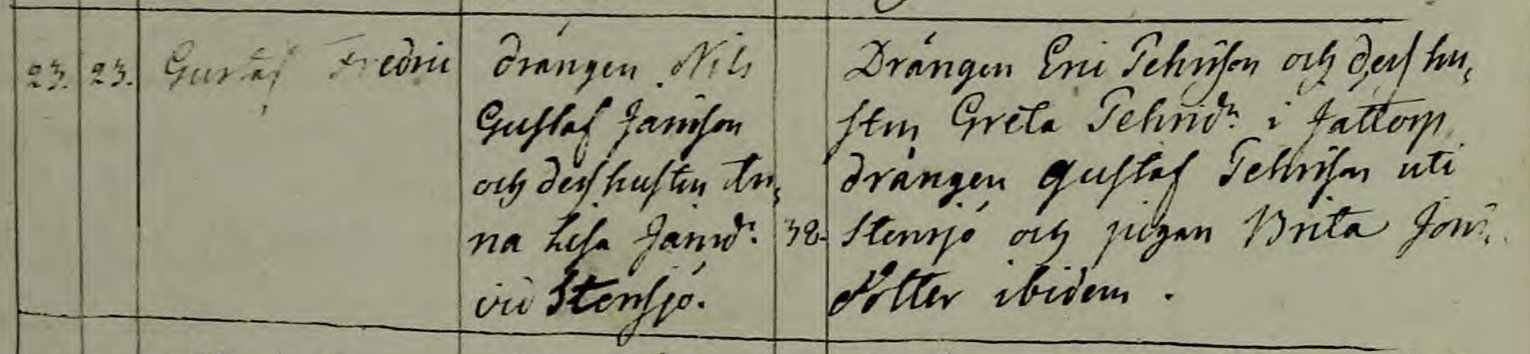 23. 23. Gustaf Fredric
drängen Nils
Gustaf Jansson
och dess hustru An,
na Lisa Jansd:r
vid Stensjö.
32.
Drängen Eric Pehrsson och dess hu,
stru Greta Pehrsd:r i Jattorp,
drängen Gustaf Pehrsson uti
Stensjö och pigan Brita Jons,
dotter ibidem.